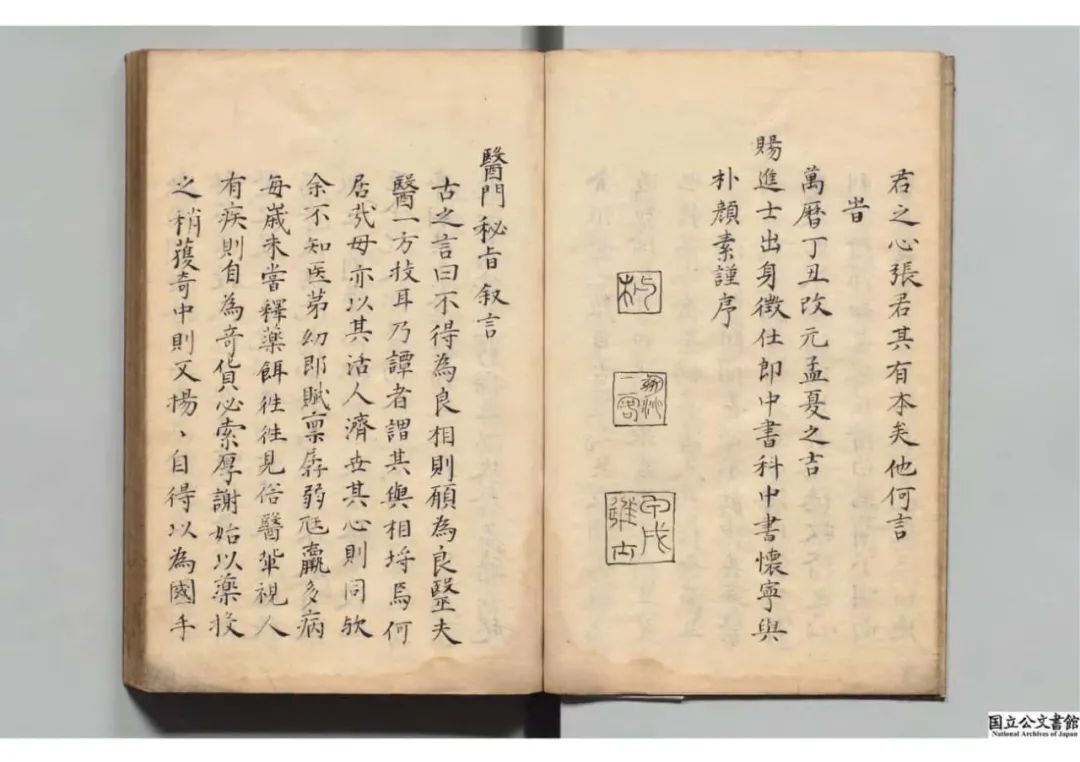 君之心張君其有本矣他何言
旹
萬曆丁丑改元孟夏之吉
賜進士出身徵仕郎中書科中書懷寧與
朴顏素謹序
甲戌
進士
醫門秘旨叙言
古之言曰不得為良相則願為良毉夫
醫一方技耳乃譚者謂其與相埒焉何
居㦲毋亦以其活人濟世其心則同欤
余不知医苐幼即賦禀孱弱尫羸多病
每嵗未嘗釋藥餌徃徃見俗醫軰視人
有疾則自為竒貨必索厚謝始以藥投
之稍獲奇中則又揚、自得以為國手
国立公文書館
National Archives of Japan